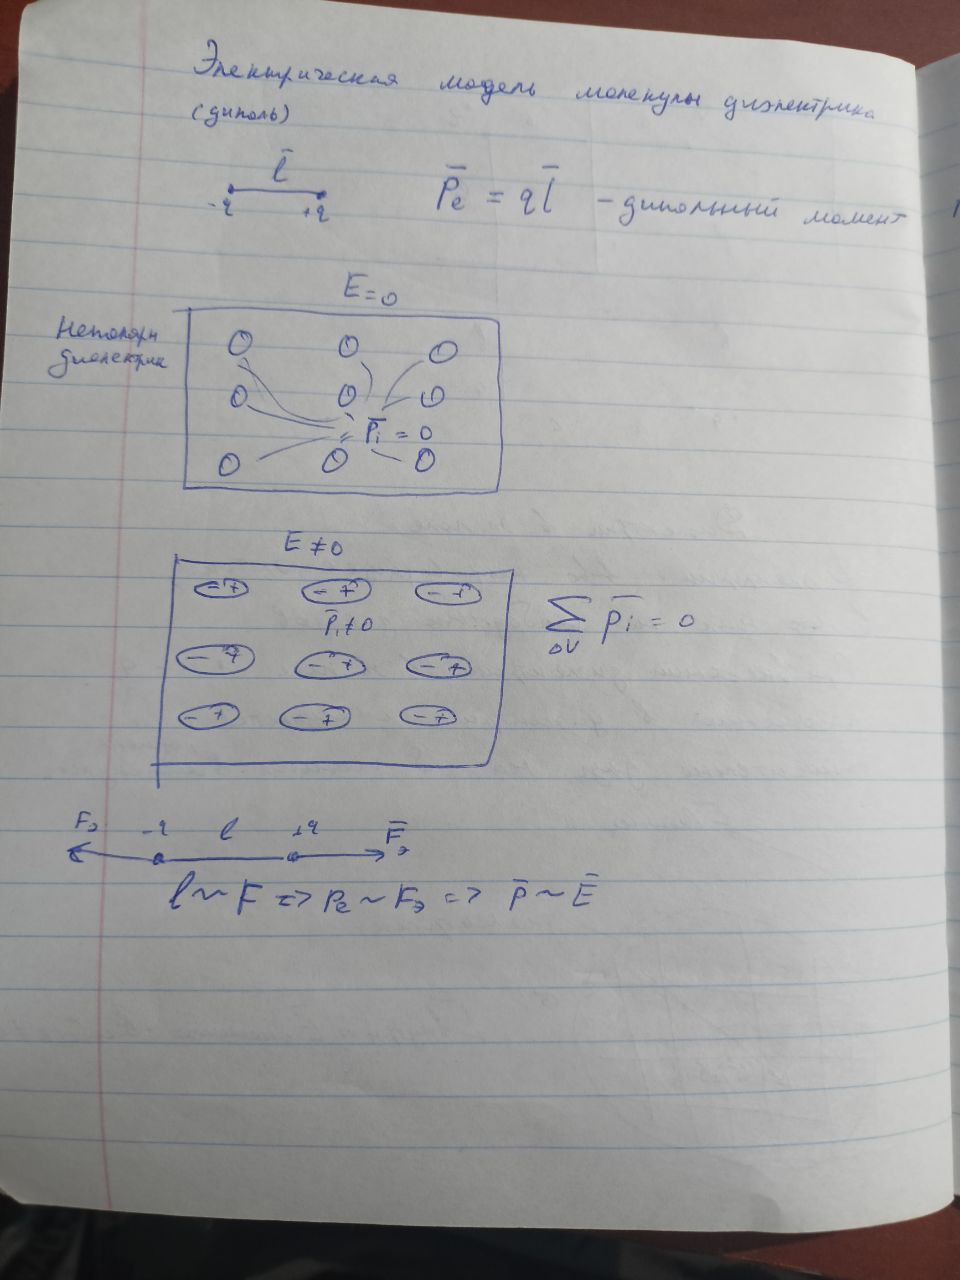 Электрическая модель молекулы диэлектрика
(диполь)
l̄
-q +q
P̄e = q l̄ - дипольный момент
E = 0
Неполярн
диэлектрик
P̄i = 0
E ≠ 0
- + - + - +
P̄i ≠ 0
- + - + - +
- + - + - +
∑ p̄i = 0
ΔV
Fэ -q l +q F̄э
l ~ F => Pe ~ Fэ => p̄ ~ Ē